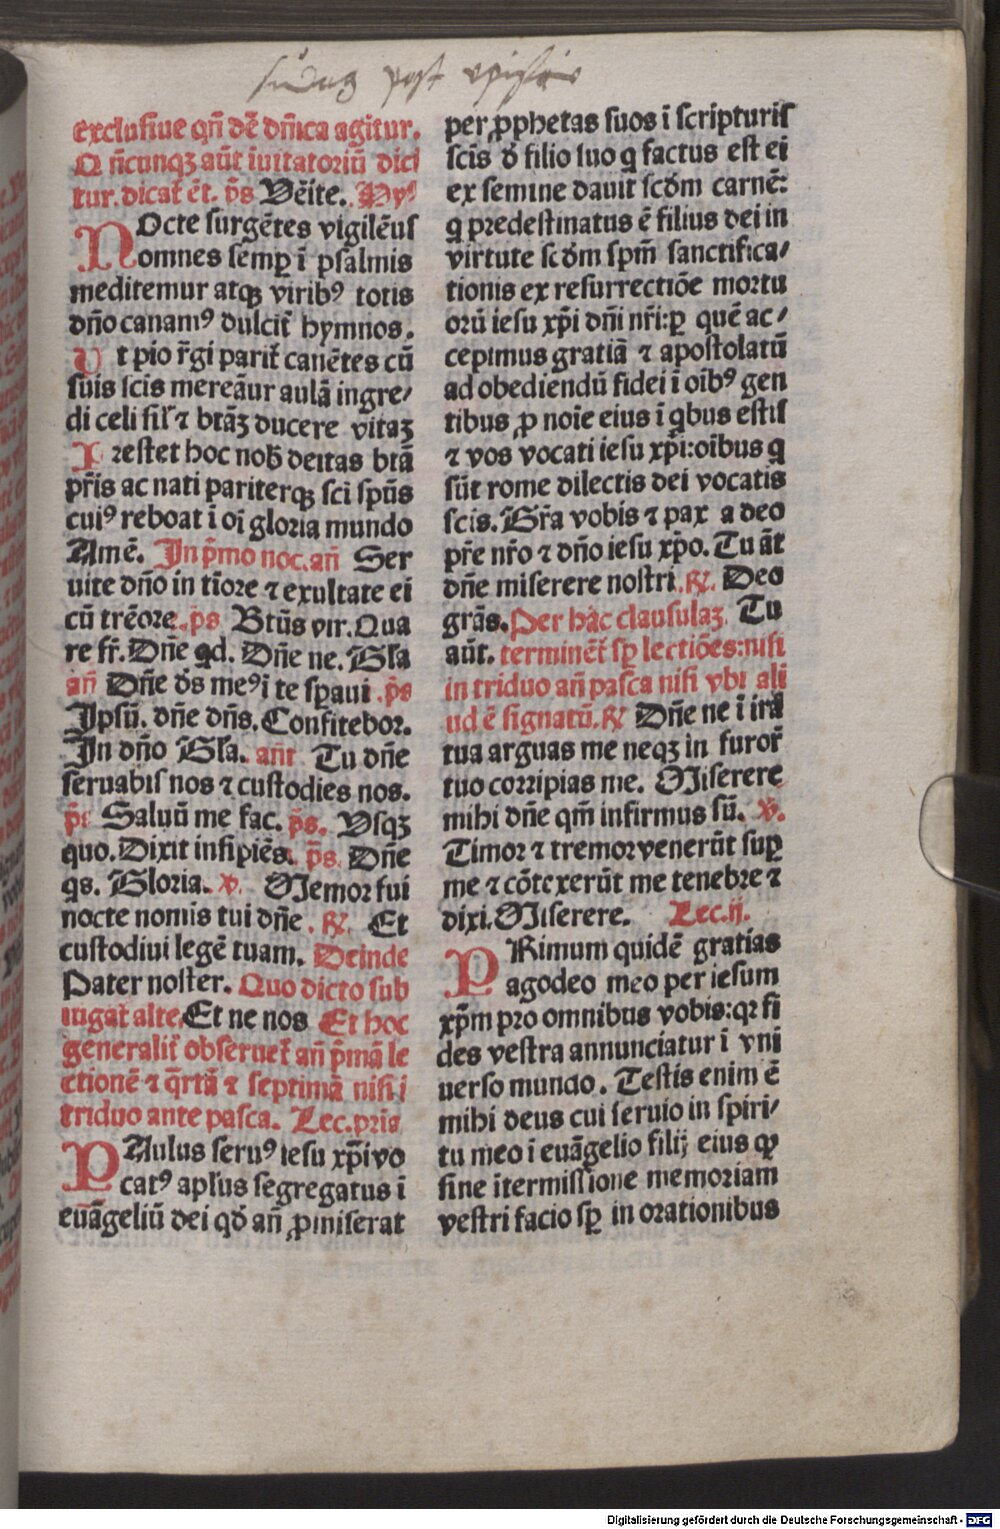 post
exclusiue qñ dē dñica agitur.
Q ñcunqꝫ aūt īuitatoriū dici
tur. dicat̄ ēt. p̄s Vēite. Hyꝰ
NOcte surgētes vigilēus
omnes semꝑ ī psalmis
meditemur atqꝫ viribꝰ totis
dño canamꝰ dulcit̄ hymnos.
Ut pio r̄gi parit̄ canētes cū
suis scis mereāur aulā ingre/
di celi sil̄ ⁊ btāꝫ ducere vitaꝫ
Prestet hoc nob̄ deitas btā
pr̄is ac nati pariterqꝫ sci sp̄us
cuiꝰ reboat ī oī gloria mundo
Amē. In p̄mo noc. añ Ser
uite dño in tīore ⁊ exultate ei
cū trēore. p̄s Btūs vir. Qua
re fr̄. Dñe qd. Dñe ne. Gla
añ Dñe d̄s meꝰ ī te sꝑaui. p̄s
Ipsū. dñe dñs. Confitebor.
In dño Gla. añt Tu dñe
seruabis nos ⁊ custodies nos.
p̄s Saluū me fac. p̄s. Vsqꝫ
quo. Dixit insipiēs. p̄s. Dñe
qs. Gloria. ℣. Memor fui
nocte nomīs tui dñe. ℟. Et
custodiui legē tuam. Deinde
Pater noster. Quo dicto sub
iugat̄ alte. Et ne nos Et hoc
generalit̄ obseruet̄ añ p̄mā le
ctionē ⁊ q̄rtā ⁊ septimā nisi ī
triduo ante pasca. Lec. pria
PAulus seruꝰ iesu xp̄i vo
catꝰ apl̄us segregatus ī
euāgeliū dei qd̄ añ ꝓmiserat
per ꝓphetas suos ī scripturis
scīs d̄ filio suo q̄ factus est ei
ex semine dauit scd̄m carnē:
q̄ predestinatus ē filius dei in
virtute scd̄m sp̄m sanctifica/
tionis ex resurrectiōe mortu
orū iesu xp̄i dñi nr̄i: ꝑ quē ac/
cepimus gratiā ⁊ apostolatū
ad obediendū fidei ī oībꝰ gen
tibus ꝓ noīe eius ī q̄bus estis
⁊ vos vocati iesu xp̄i: oībus q̄
sūt rome dilectis dei vocatis
scis. Gr̄a vobis ⁊ pax a deo
pr̄e nr̄o ⁊ dño iesu xp̄o. Tu āt
dñe miserere nostri. ℟. Deo
grās. Per hāc clausulaꝫ. Tu
aūt. terminēt̄ sꝑ lectiōes: nisi
in triduo añ pasca nisi vbi ali
ud ē signatū. ℟ Dñe ne ī irā
tua arguas me neqꝫ in furor̄
tuo corripias me. Miserere
mihi dñe qm̄ infirmus sū. ℣.
Timor ⁊ tremor venerūt suꝑ
me ⁊ cōtexerūt me tenebre ⁊
dixi. Miserere. Lec. ij.
PRimum quidē gratias
ago deo meo per iesum
xp̄m pro omnibus vobis: qꝛ fi
des vestra annunciatur ī vni
uerso mundo. Testis enim ē
mihi deus cui seruio in spiri/
tu meo ī euāgelio filij eius ꝙ
sine ītermissione memoriam
vestri facio sꝑ in orationibus
Digitalisierung gefördert durch die Deutsche Forschungsgemeinschaft - DFG